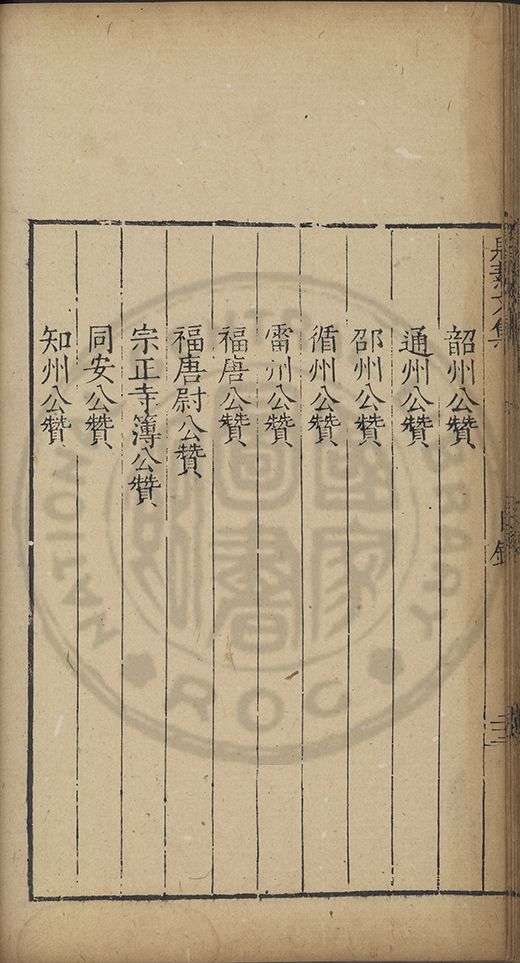 韶州公贊
通州公贊
邵州公贊
循州公贊
雷州公贊
福唐公贊
福唐尉公贊
宗正寺簿公贊
同安公贊
知州公贊
目錄
三